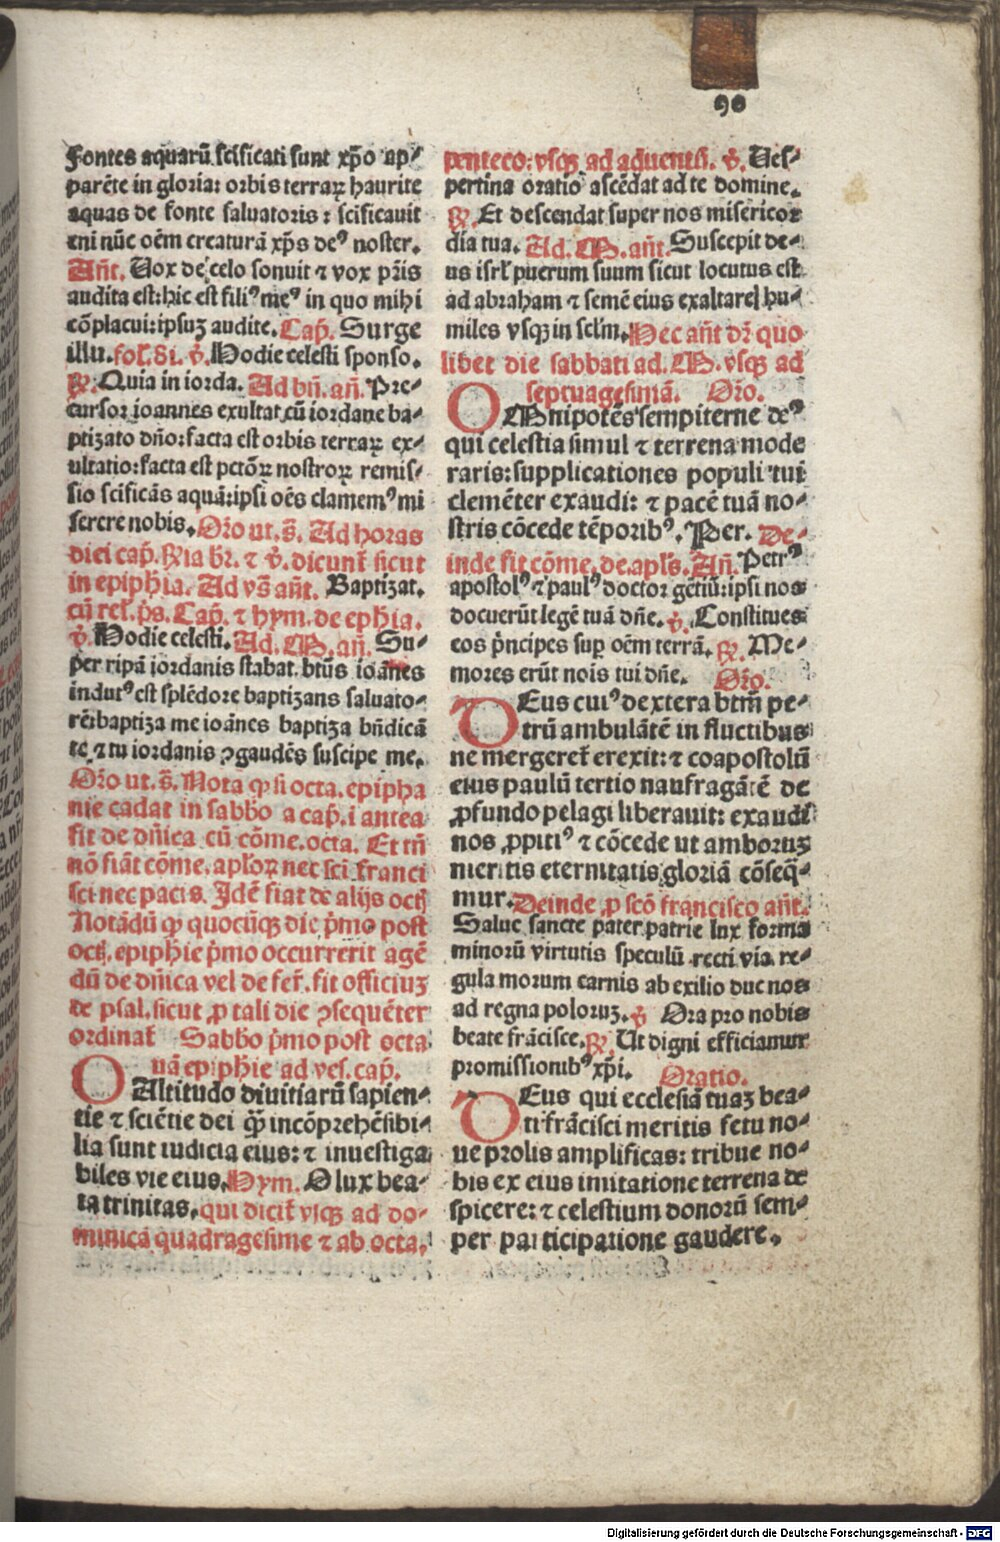 90
Fontes aquarū scīficati sunt xp̄o ap⸗
parēte in gloria: orbis terraꝝ haurite
aquas de fonte saluatoris: scīficauit
eni nūc oēm creaturā xp̄s deꝰ noster.
Añt. Uox de celo sonuit ⁊ vox pr̄is
audita est: hic est filiꝰ meꝰ in quo mihi
cōplacui: ipsuꝫ audite. Cap̄. Surge
illu. fol. 81. v̄. Hodie celesti sponso.
R̄. Quia in iorda. Ad bñ. añ. Pre⸗
cursor ioannes exultat cū iordane ba⸗
ptizato dño: facta est orbis terraꝝ ex⸗
ultatio: facta est pctōꝝ nostroꝝ remis⸗
sio scīficās aquā: ipsi oēs clamemꝰ mi
serere nobis. Or̄o ut. s̄. Ad horas
diei cap̄. R̄ia br̄. ⁊ v̄. dicunt̄ sicut
in epiphīa. Ad vs̄ añt. Baptizat.
cū rel. p̄s. Cap̄. ⁊ hym. de ephīa.
v̄. Hodie celesti. Ad. M. añ. Su⸗
per ripā iordanis stabat. btūs ioānes
indutꝰ est splēdore baptizans saluato⸗
rē: baptiza me ioānes baptiza bñdicā
te, ⁊ tu iordanis ꝯgaudēs suscipe me.
Or̄o ut. s̄. Notā ꝙ si octa. epipha
nie cadat in sabb̄o a cap̄. i antea
fit de dñica cū cōme. octa. Et tñ
nō fiāt cōme. apl̄oꝝ nec scī franci
sci nec pacis. Idē fiat de alijs octꝭ
Notādū ꝙ quocūqꝫ die p̄mo post
octꝭ. epiphīe p̄mo occurrerit agē
dū de dñica vel de fer̄. fit officiuꝫ
de psal. sicut ꝓ tali die ꝯsequēter
ordinat̄ Sabb̄o p̄mo post octa
uā epiphīe ad ves. cap̄.
O Altitudo diuitiarū sapien⸗
tie ⁊ sciētie dei ꝙ̄ incōprehēsibi⸗
lia sunt iudicia eius: ⁊ inuestiga
biles vie eius. Hym. O lux bea⸗
ta trinitas. qui dicit̄ vsqꝫ ad do⸗
minicā quadragesime ⁊ ab octa.
penteco: vsqꝫ ad aduentū. v̄. Ues⸗
pertina oratio ascēdat ad te domine.
R̄. Et descendat super nos misericor
dia tua. Ad. M. añt. Suscepit de⸗
us isrl̄ puerum suum sicut locutus est
ad abraham ⁊ semē eius exaltare hu⸗
miles vsqꝫ in sclm̄. Hec añt dr̄ quo
libet die sabbati ad. M. vsqꝫ ad
septuagesimā. Or̄o.
OMnipotēs sempiterne deꝰ
qui celestia simul ⁊ terrena mode
raris: supplicationes populi tui
clemēter exaudi: ⁊ pacē tuā no⸗
stris cōcede tēporibꝰ. Per. De⸗
inde fit cōme. de. apl̄s. Añ. Petrꝰ
apostolꝰ ⁊ paulꝰ doctor gētiū: ipsi nos
docuerūt legē tuā dñe. v̄. Constitues
eos p̄ncipes sup oēm terrā. R̄. Me⸗
mores erūt nois tui dñe. Or̄o.
DEus cuiꝰ dextera btm̄ pe⸗
trū ambulātē in fluctibus
ne mergeret̄ erexit: ⁊ coapostolū
eius paulū tertio naufragātē de
ꝓfundo pelagi liberauit: exaudi
nos ꝓpitiꝰ ⁊ cōcede ut amboruꝫ
meritis eternitatis gloriā cōseq̄⸗
mur. Deinde ꝓ scō francisco añt.
Salue sancte pater patrie lux forma
minorū virtutis speculū recti via re⸗
gula morum carnis ab exilio duc nos
ad regna poloruꝫ. v̄ Ora pro nobis
beate frācisce. R̄. Ut digni efficiamur
promissionibꝰ xp̄i. Oratio.
DEus qui ecclesiā tuaꝫ bea⸗
ti frācisci meritis fetu no⸗
ue prolis amplificas: tribue no⸗
bis ex eius imitatione terrena de
spicere: ⁊ celestium donorū sem⸗
per participatione gaudere.
Digitalisierung gefördert durch die Deutsche Forschungsgemeinschaft - DFG